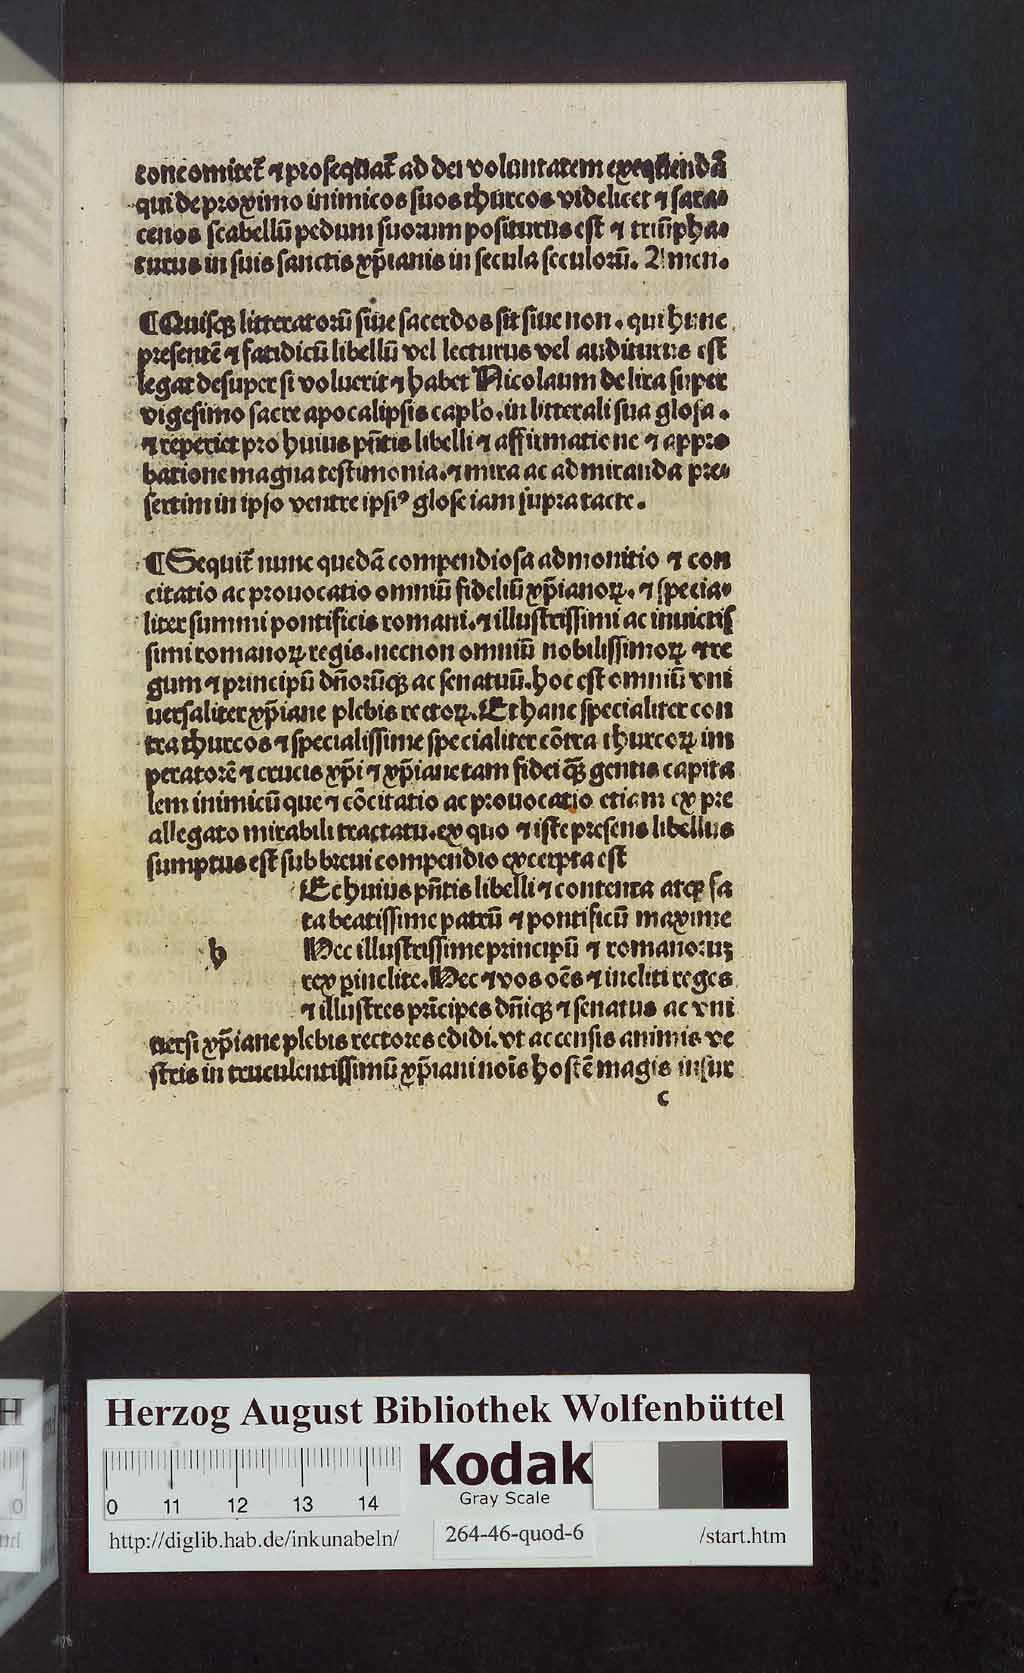 concomitet̃ ⁊ proſequat̃ ad dei voluntatem exequendã
qui de proximo inimicos ſuos thurcos videlicet ⁊ ſara⸗
cenos ſcabellũ pedum ſuorum poſiturus eſt ⁊ triũpha⸗
turus in ſuis ſanctis xp̃ianis in ſecula ſeculorũ. Amen.
¶ Quiſqꝫ litteratorũ ſiue ſacerdos ſit ſiue non. qui hunc
preſentẽ ⁊ fatidicũ libellũ vel lecturus vel auditurus eſt
legat deſuper ſi voluerit ⁊ habet Nicolaum de lira ſuper
vigeſimo ſacre apocalipſis caplo. in litterali ſua gloſa.
⁊ reperiet pro huius pñtis libelli ⁊ affirmatione ⁊ appro
batione magna teſtimonia. ⁊ mira ac admiranda pre⸗
ſertim in ipſo ventre ipſiꝰ gloſe iam ſupra tacte.
¶ Sequit̃ nunc quedã compendioſa admonitio ⁊ con
citatio ac prouocatio omniũ fideliũ xp̃ianoꝝ. ⁊ ſpecia⸗
liter ſummi pontificis romani. ⁊ illuſtriſſimi ac inuictiſ
ſimi romanoꝝ regis. necnon omniũ nobiliſſimoꝝ ⁊ re
gum ⁊ principũ dñorũqꝫ ac ſenatuũ. hoc eſt omniũ vni
uerſaliter xp̃iane plebis rectoꝝ. Et hanc ſpecialiter con
tra thurcos ⁊ ſpecialiſſime ſpecialiter cõtra thurcoꝝ im
peratorẽ ⁊ crucis xp̃i ⁊ xp̃iane tam fidei qꝫ̃ gentis capita
lem inimicũ que ⁊ cõcitatio ac prouocatio etiam ex pre
allegato mirabili tractatu. ex quo ⁊ iſte preſens libellus
ſumptus eſt ſub breui compendio excerpta eſt
Ec huius pñtis libelli ⁊ contenta atqꝫ fa
ta beatiſſime patrũ ⁊ pontificũ maxime
h Hec illuſtriſſime principũ ⁊ romanoruꝫ
rex ꝑinclite. Hec ⁊ vos oẽs ⁊ incliti reges
⁊ illuſtres prĩcipes dñiqꝫ ⁊ ſenatus ac vni
uerſi xp̃iane plebis rectores edidi. vt accenſis animis ve
ſtris in truculentiſſimũ xp̃iani noĩs hoſtẽ magis inſur
c
Herzog August Bibliothek Wolfenbüttel
0 11 12 13 14
Kodak
Gray Scale
http://diglib.hab.de/inkunabeln/
264-46-quod-6
/start.htm